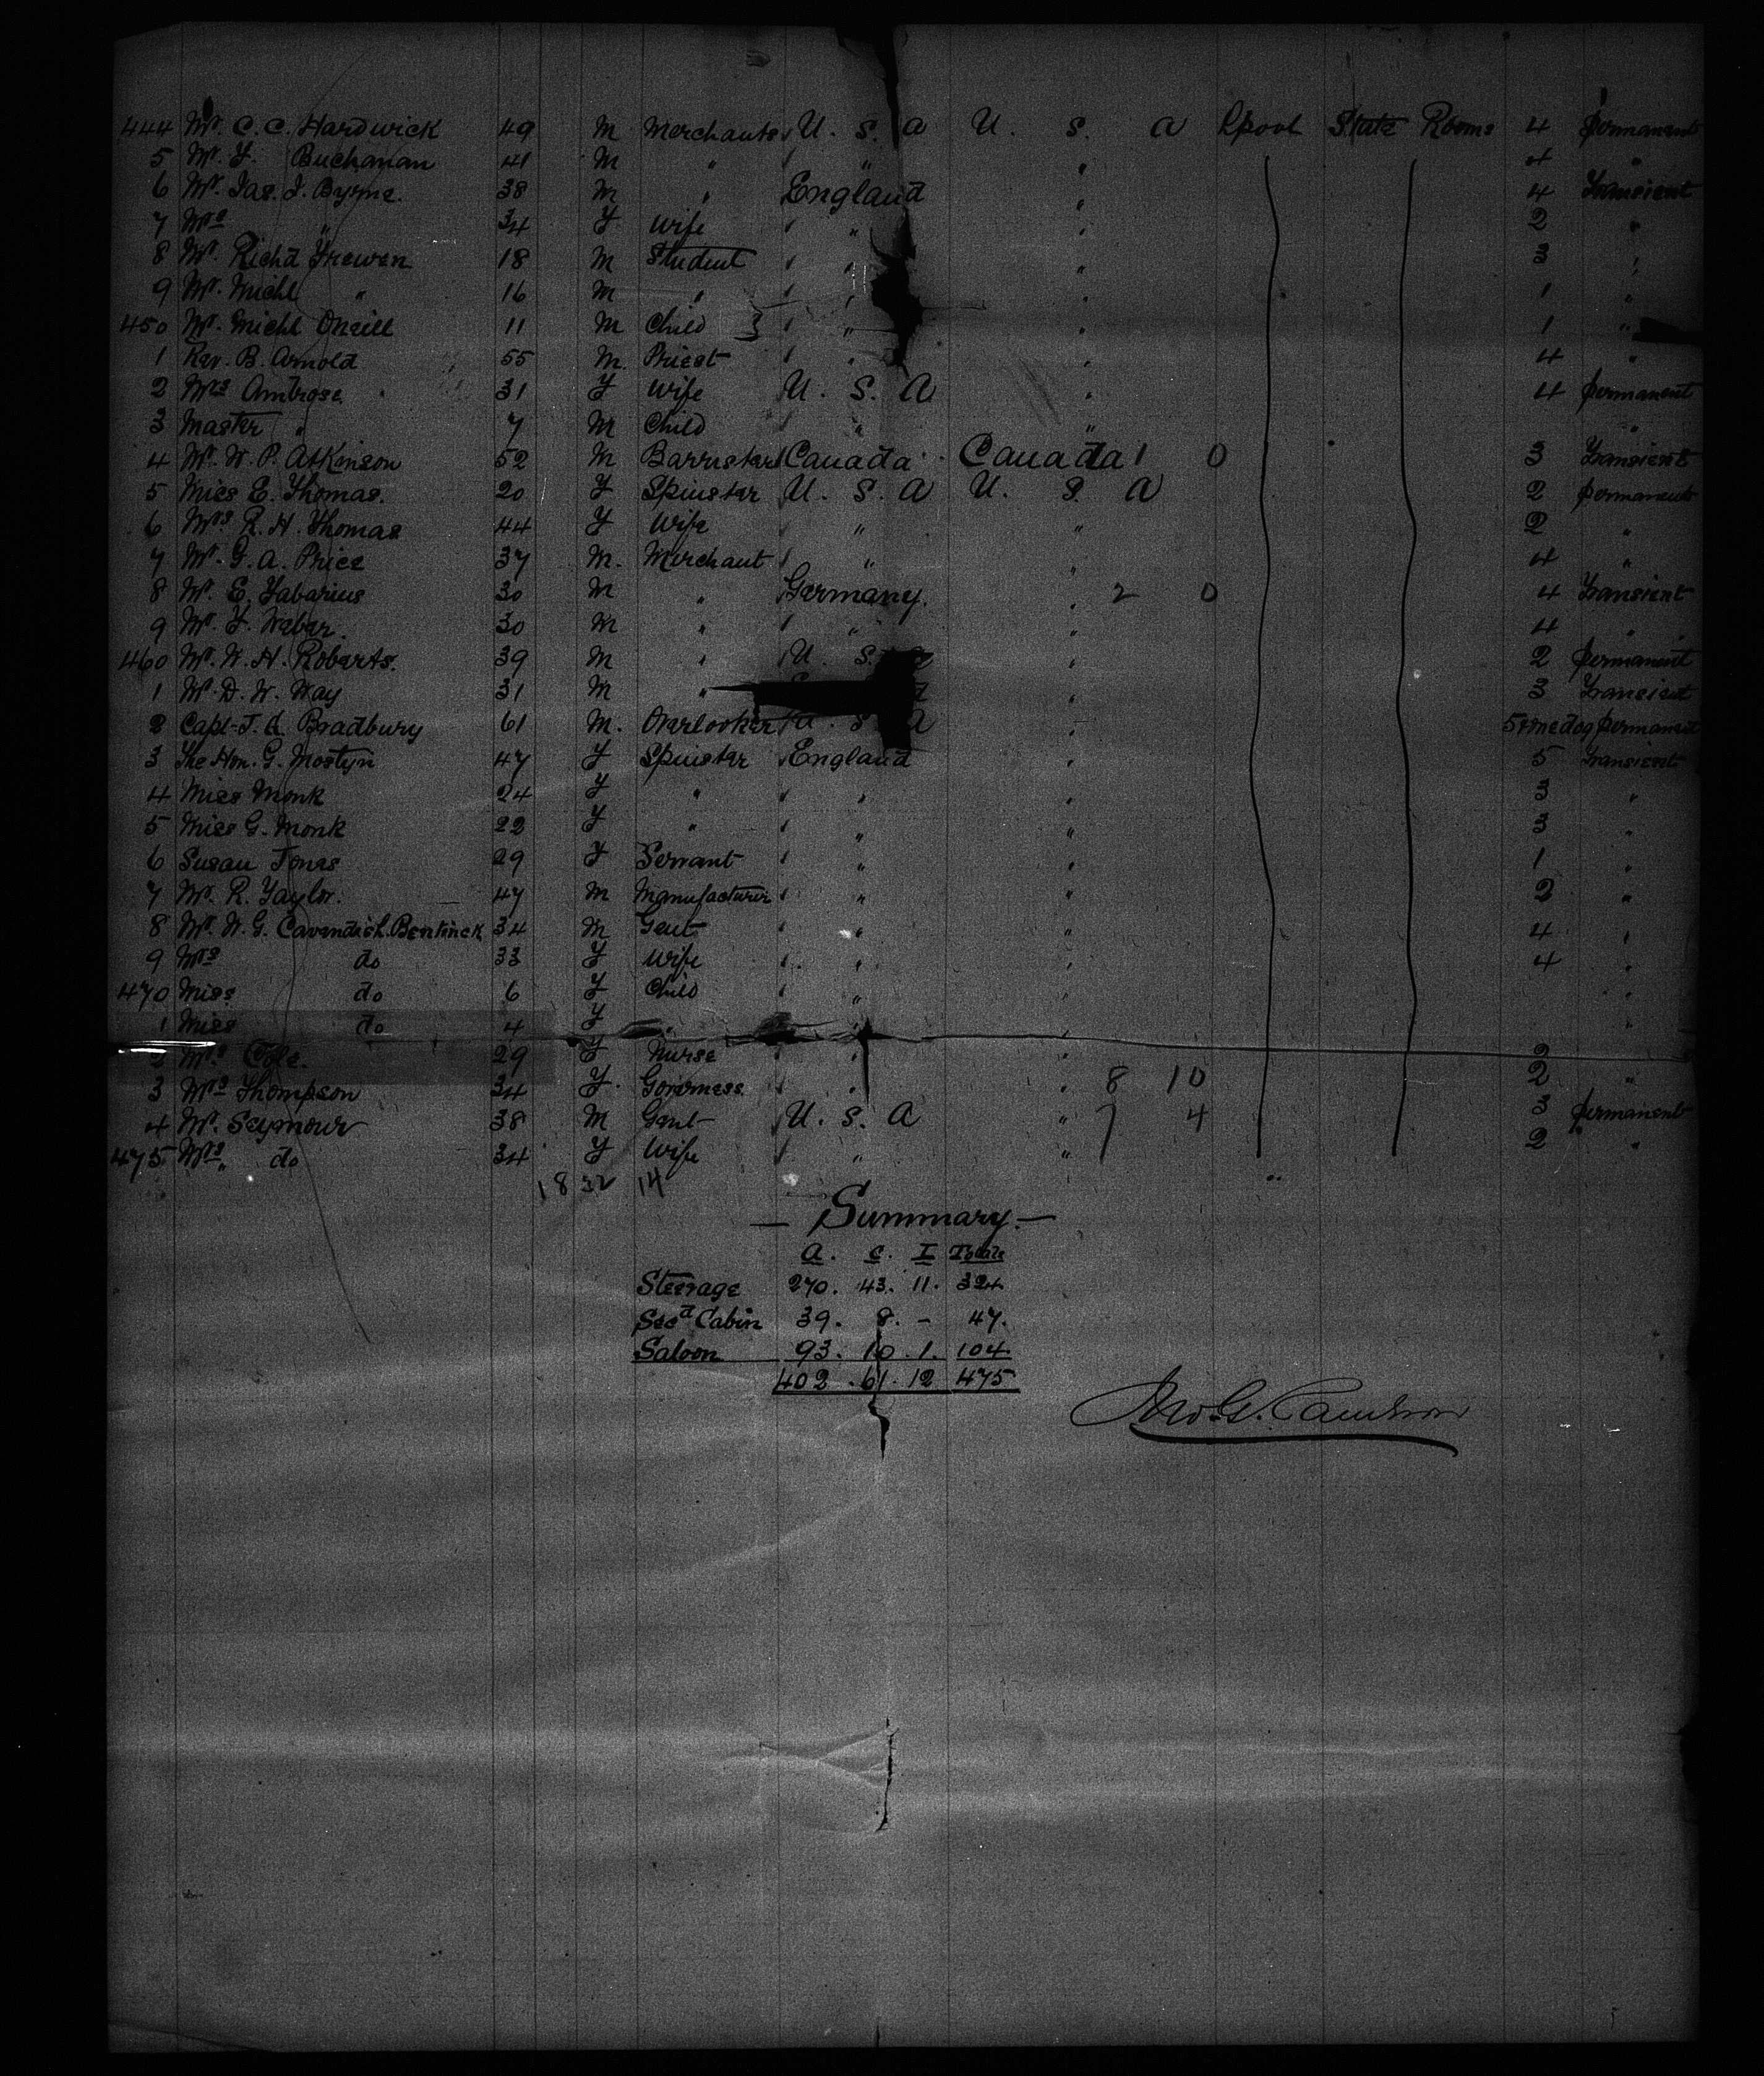 444 Mr. C. C. Hardwick 49 M Merchants U. S. A U. S. A Lpool State Rooms 4 permanent
5 Mr. F. Buchanan 41 M " " " 4 "
6 Mr. Jas. J. Byrne. 38 M " England " 4 Transient
7 Mrs " 34 F Wife " " 2 "
8 Mr. Richd Frewen 18 M Student " " 3 "
9 Mr. Michl " 16 M " " " 1 "
450 Mr. Michl Oneill 11 M Child " " 1 "
1 Rev. B. Arnold 55 M. Priest " " 4 "
2 Mrs Ambrose 31 F Wife U. S. A " 4 permanent
3 Master " 7 M Child " " "
4 Mr. W. P. Atkinson 52 M Barrister Canada Canada 1 0 3 Transient
5 Miss E. Thomas. 20 F Spinster U. S. A U. S. A 2 permanent
6 Mrs. R. H. Thomas 44 F Wife " " 2 "
7 Mr. G. A. Price 37 M. Merchant " " 4 "
8 Mr. E. Fabarius 30 M " Germany. " 2 0 4 Transient
9 Mr. F. Weber. 30 M " " " 4 "
460 Mr. W. H. Roberts. 39 M " U. S. " 2 permanent
1 Mr. D. W. Way 31 M " " 3 Transient
2 Capt. J. A. Bradbury 61 M. Overlooker U. S. A " 5 & one dog permanent
3 The Hon. G. Mostyn 47 F Spinster England " 5 Transient
4 Miss Monk 24 F " " " 3 "
5 Miss G. Monk 22 F " " " 3 "
6 Susan Jones 29 F Servant " " 1 "
7 Mr. R. Taylor. 47 M Manufacturer " " 2 "
8 Mr. W. G. Cavendish. Bentinck 34 M Gent " " 4 "
9 Mrs do 33 F Wife " " 4 "
470 Miss do 6 F Child " " "
1 Miss do 4 F " " " "
2 Mrs Cole. 29 F Nurse " " 2
3 Mrs Thompson 34 F. Governess " " 8 10 2 "
4 Mr. Seymour 38 M Gent U. S. A " 7 4 3 permanent
475 Mrs. do 34 F Wife " " 2 "
18 32 14
— Summary. —
A. C. I Totals
Steerage 270. 43. 11. 324
Secd Cabin 39. 8. - 47.
Saloon 93. 10. 1. 104
402. 61. 12 475